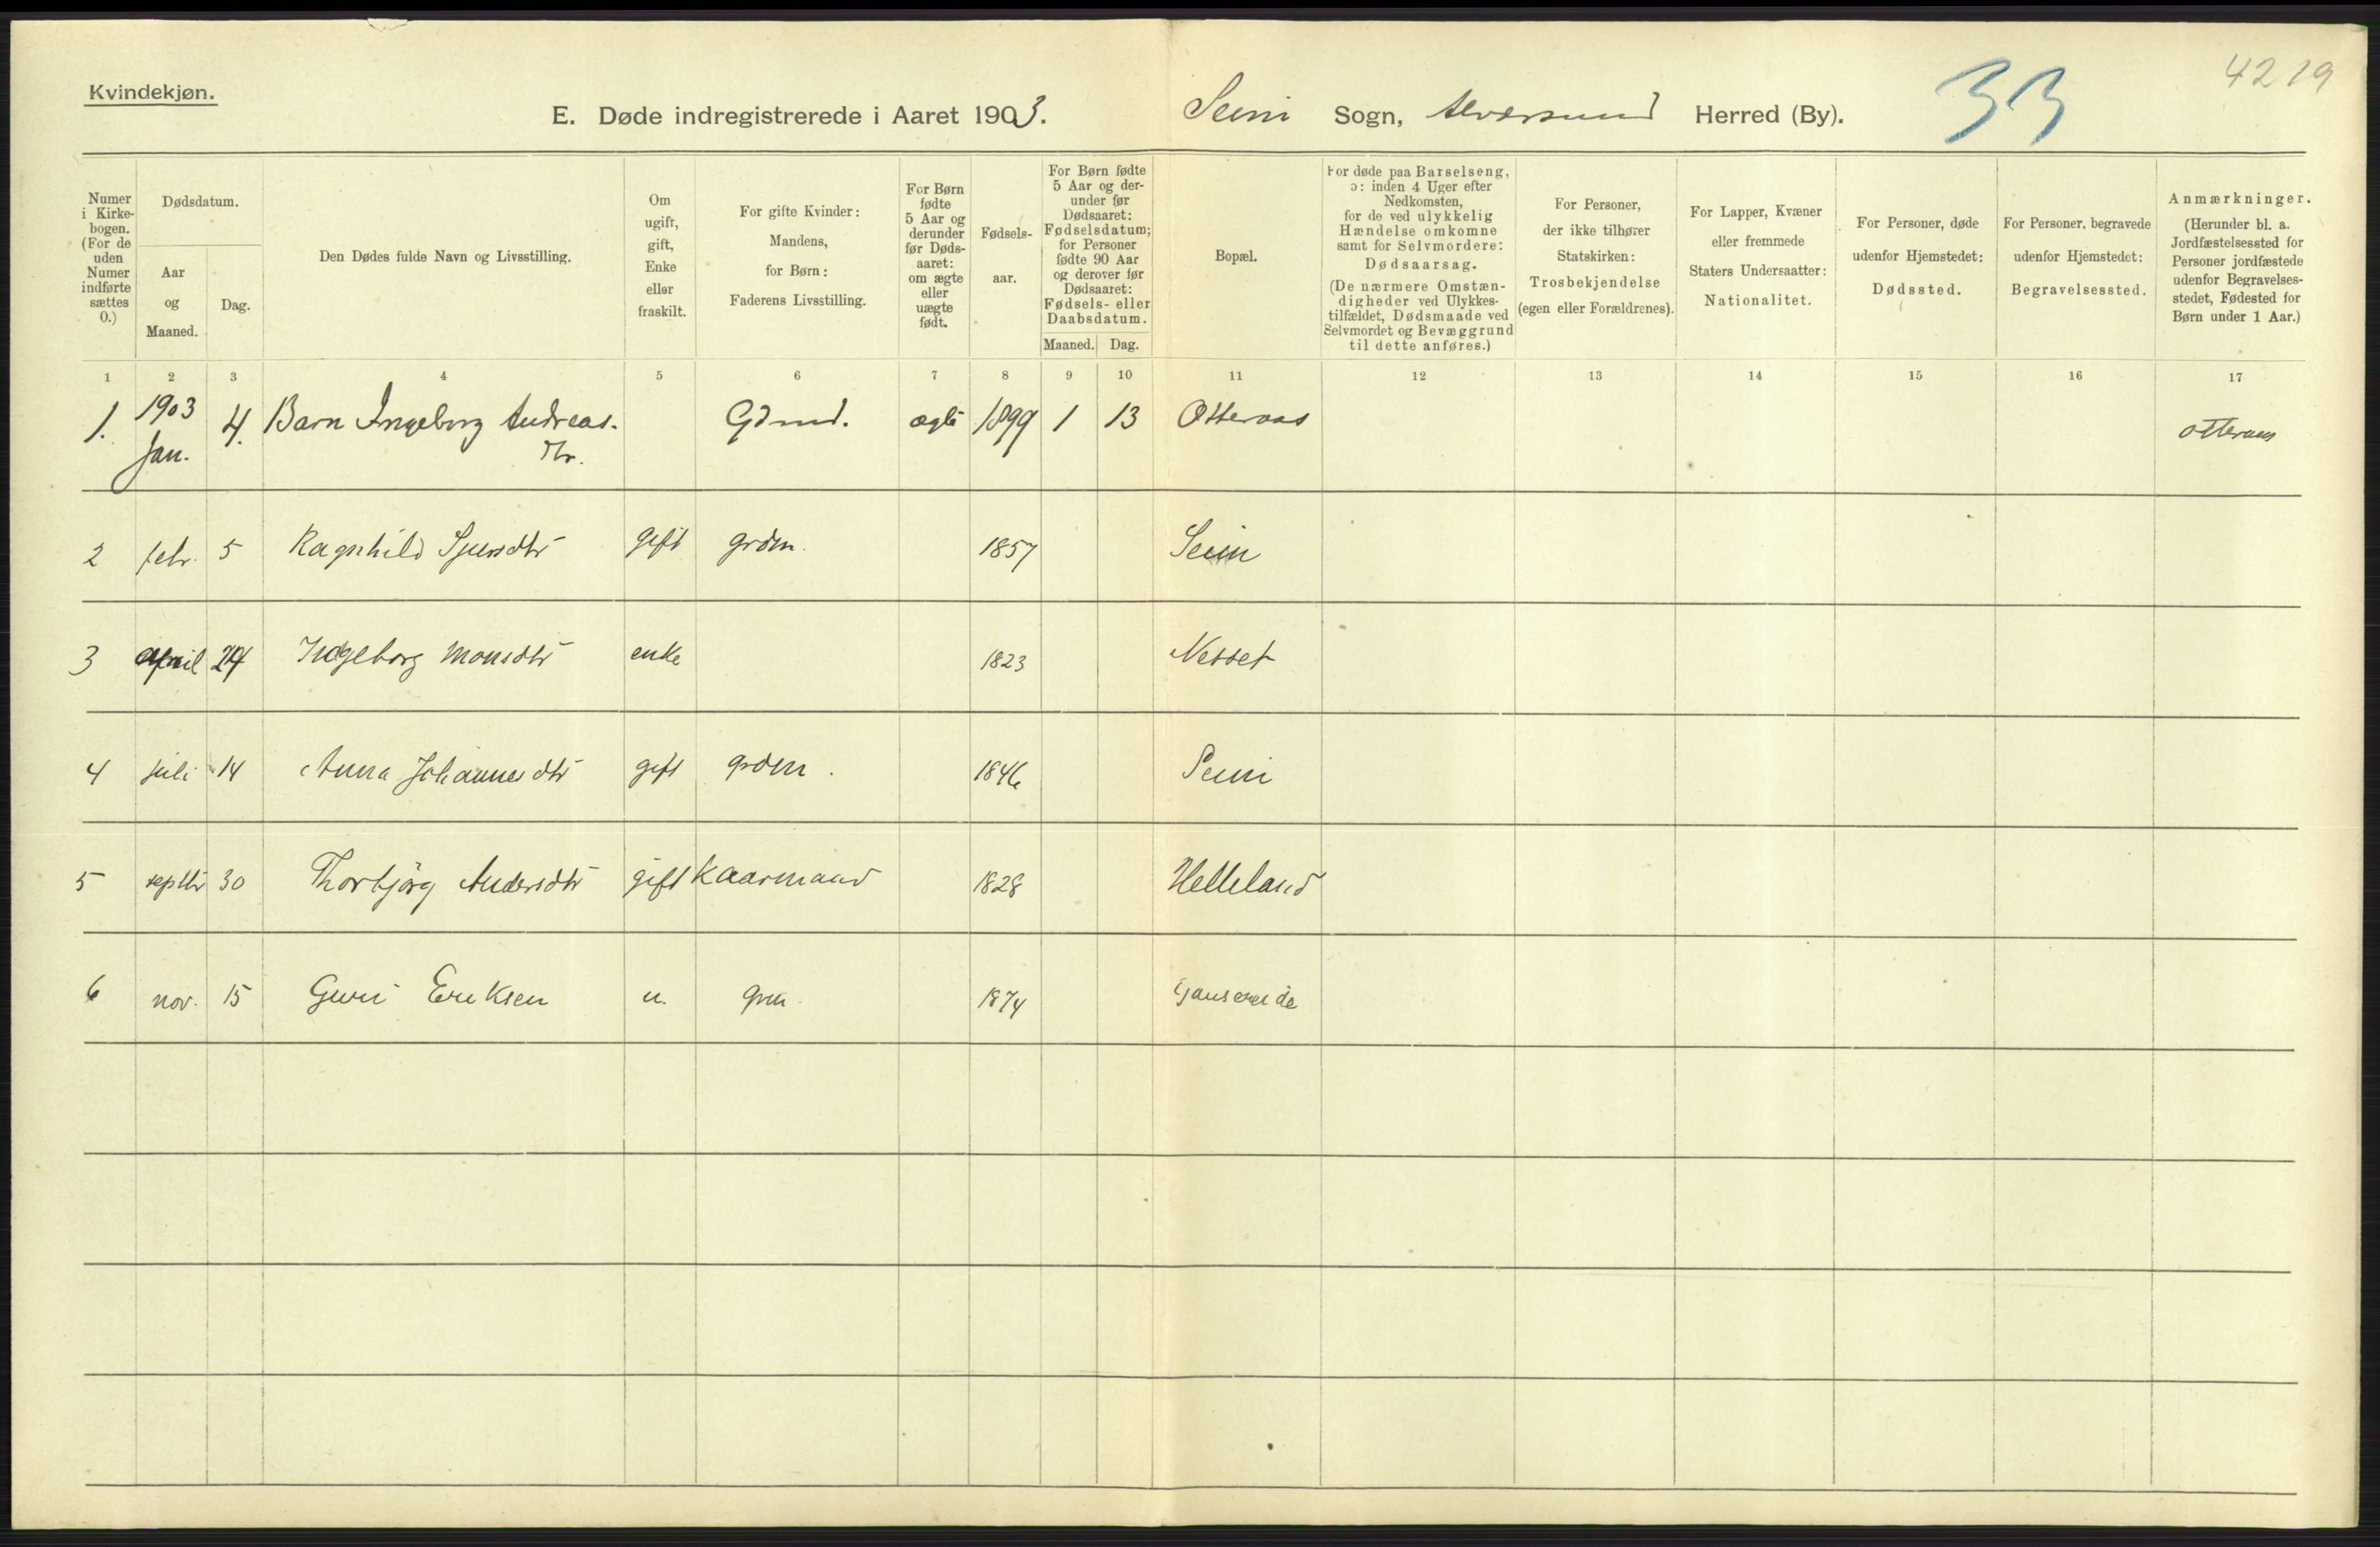 Kvindekjøn.
4219
33
E. Døde indregistrerede i Aaret 1903. Seim Sogn, Alversund Herred (By).
Numer i Kirkebogen. (For de uden Numer indførte sættes 0.)
Dødsdatum.
Aar og Maaned.
Dag.
Den Dødes fulde Navn og Livsstilling.
Om ugift, gift, Enke eller fraskilt.
For gifte Kvinder: Mandens, for Børn: Faderens Livsstilling.
For Børn fødte 5 Aar og derunder før Dødsaaret: om ægte eller uægte født.
Fødselsaar.
For Børn fødte 5 Aar og derunder før Dødsaaret: Fødselsdatum; for Personer fødte 90 Aar og derover før Dødsaaret: Fødsels- eller Daabsdatum.
Maaned. Dag.
Bopæl.
For døde paa Barselseng, ɔ: inden 4 Uger efter Nedkomsten, for de ved ulykkelig Hændelse omkomne samt for Selvmordere: Dødsaarsag. (De nærmere Omstændigheder ved Ulykkestilfældet, Dødsmaade ved Selvmordet og Bevæggrund til dette anføres.)
For Personer, der ikke tilhører Statskirken: Trosbekjendelse (egen eller Forældrenes).
For Lapper, Kvæner eller fremmede Staters Undersaatter: Nationalitet.
For Personer, døde udenfor Hjemstedet: Dødssted.
For Personer, begravede udenfor Hjemstedet: Begravelsessted.
Anmærkninger. (Herunder bl. a. Jordfæstelsessted for Personer jordfæstede udenfor Begravelsesstedet, Fødested for Børn under 1 Aar.)
1 2 3 4 5 6 7 8 9 10 11 12 13 14 15 16 17
1. 1903 Jan. 4. Barn Ingeborg Andreas. dtr. Gdmd. ægte 1899 1 13 Otteraas otteraas
2 febr. 5 Ragnhild Sjursdtr gift grdm. 1857 Seim
3 april 24 Ingeborg Monsdtr enke 1823 Nesset
4 juli 14 Anna Johannesdtr gift grdm. 1846 Seim
5 septbr 30 Thorbjörg Andersdtr gift Kaarmand 1828 Helleland
6 nov. 15 Guri Eriksen u. gm. 1874